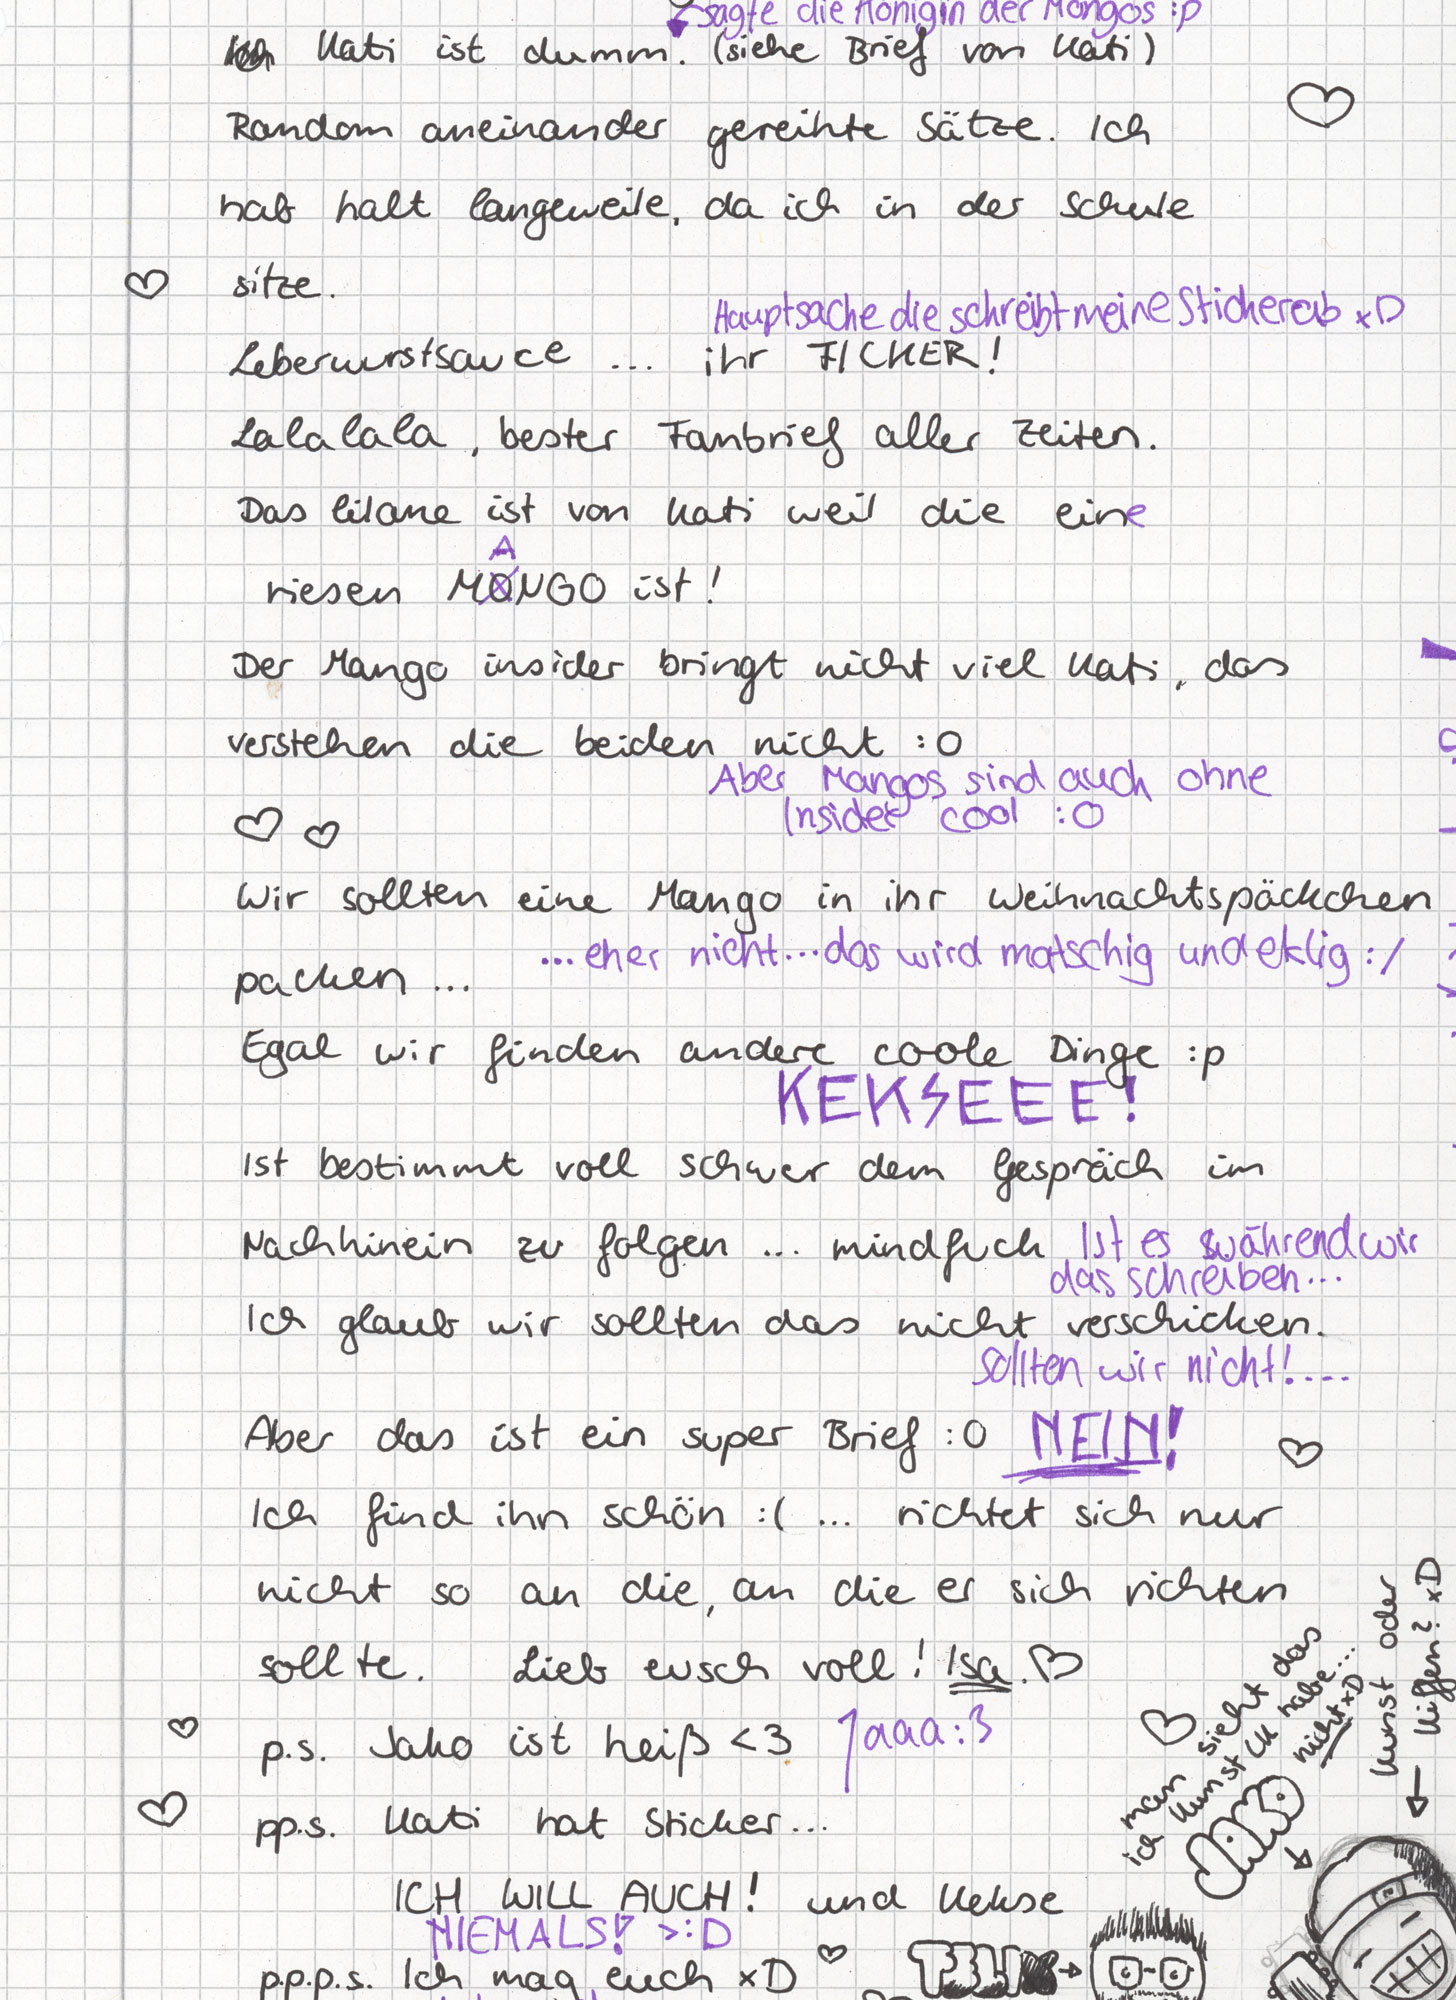 sagte die Königin der Mangos :p
Kati ist dumm. (siehe Brief von Kati)
Random aneinander gereihte Sätze. Ich
hab halt langeweile, da ich in der schule
sitze.
Hauptsache die schreibt meine Sticker ab xD
Leberwurstsauce ... ihr FICKER!
Lalalala, bester Fanbrief aller Zeiten.
Das lilane ist von Kati weil die eine
A
riesen MONGO ist!
Der Mango insider bringt nicht viel Kati, das
verstehen die beiden nicht :O
Aber Mangos sind auch ohne
Insider cool :O
Wir sollten eine Mango in ihr Weihnachtspäckchen
...eher nicht...das wird matschig und eklig :/
packen ...
Egal wir finden andere coole Dinge :p
KEKSEEE!
Ist bestimmt voll schwer dem Gespräch im
Nachhinein zu folgen ... mindfuck Ist es während wir
das schreiben...
Ich glaub wir sollten das nicht verschicken.
Sollten wir nicht!....
Aber das ist ein super Brief :O NEIN!
Ich find ihn schön :( ... richtet sich nur
nicht so an die, an die er sich richten
sollte. Lieb eusch voll! Isa.
p.s. Jako ist heiß <3 Jaaa :3
pp.s. Kati hat Sticker...
ICH WILL AUCH! und Kekse
NIEMALS! >:D
p.p.p.s. Ich mag euch xD
man sieht das
ich Kunst LK habe...
nicht xD
Kunst oder
Kiffen? xD